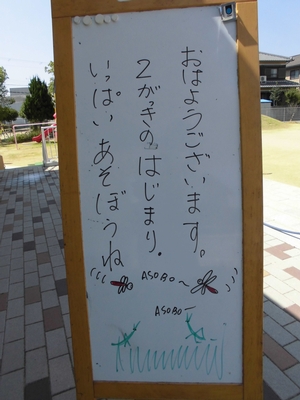 おはようございます。
2がっきの はじまり.
いっぱい あそぼうね
ASOBO~
ASOBO-